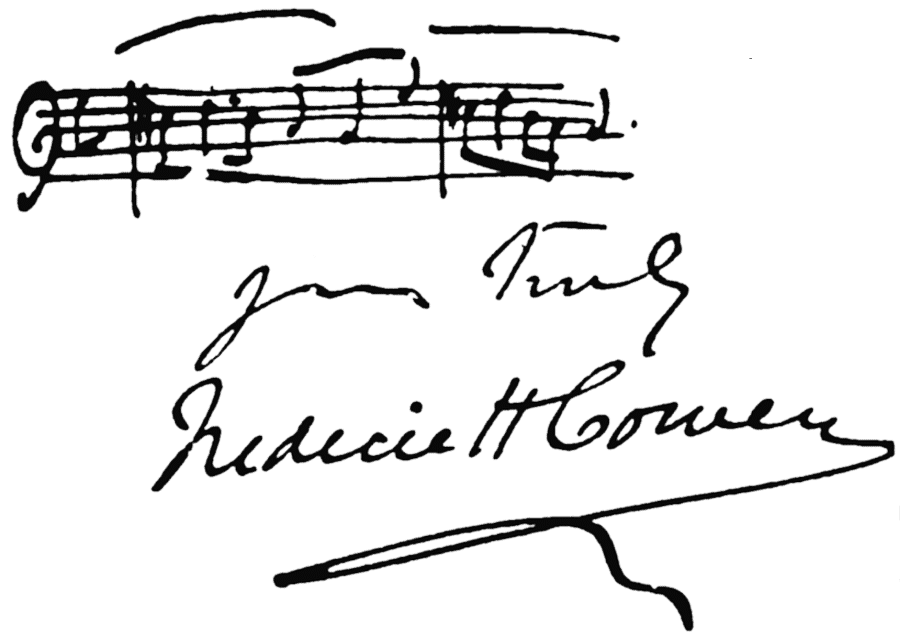 Yours Truly
Frederic H Cowen